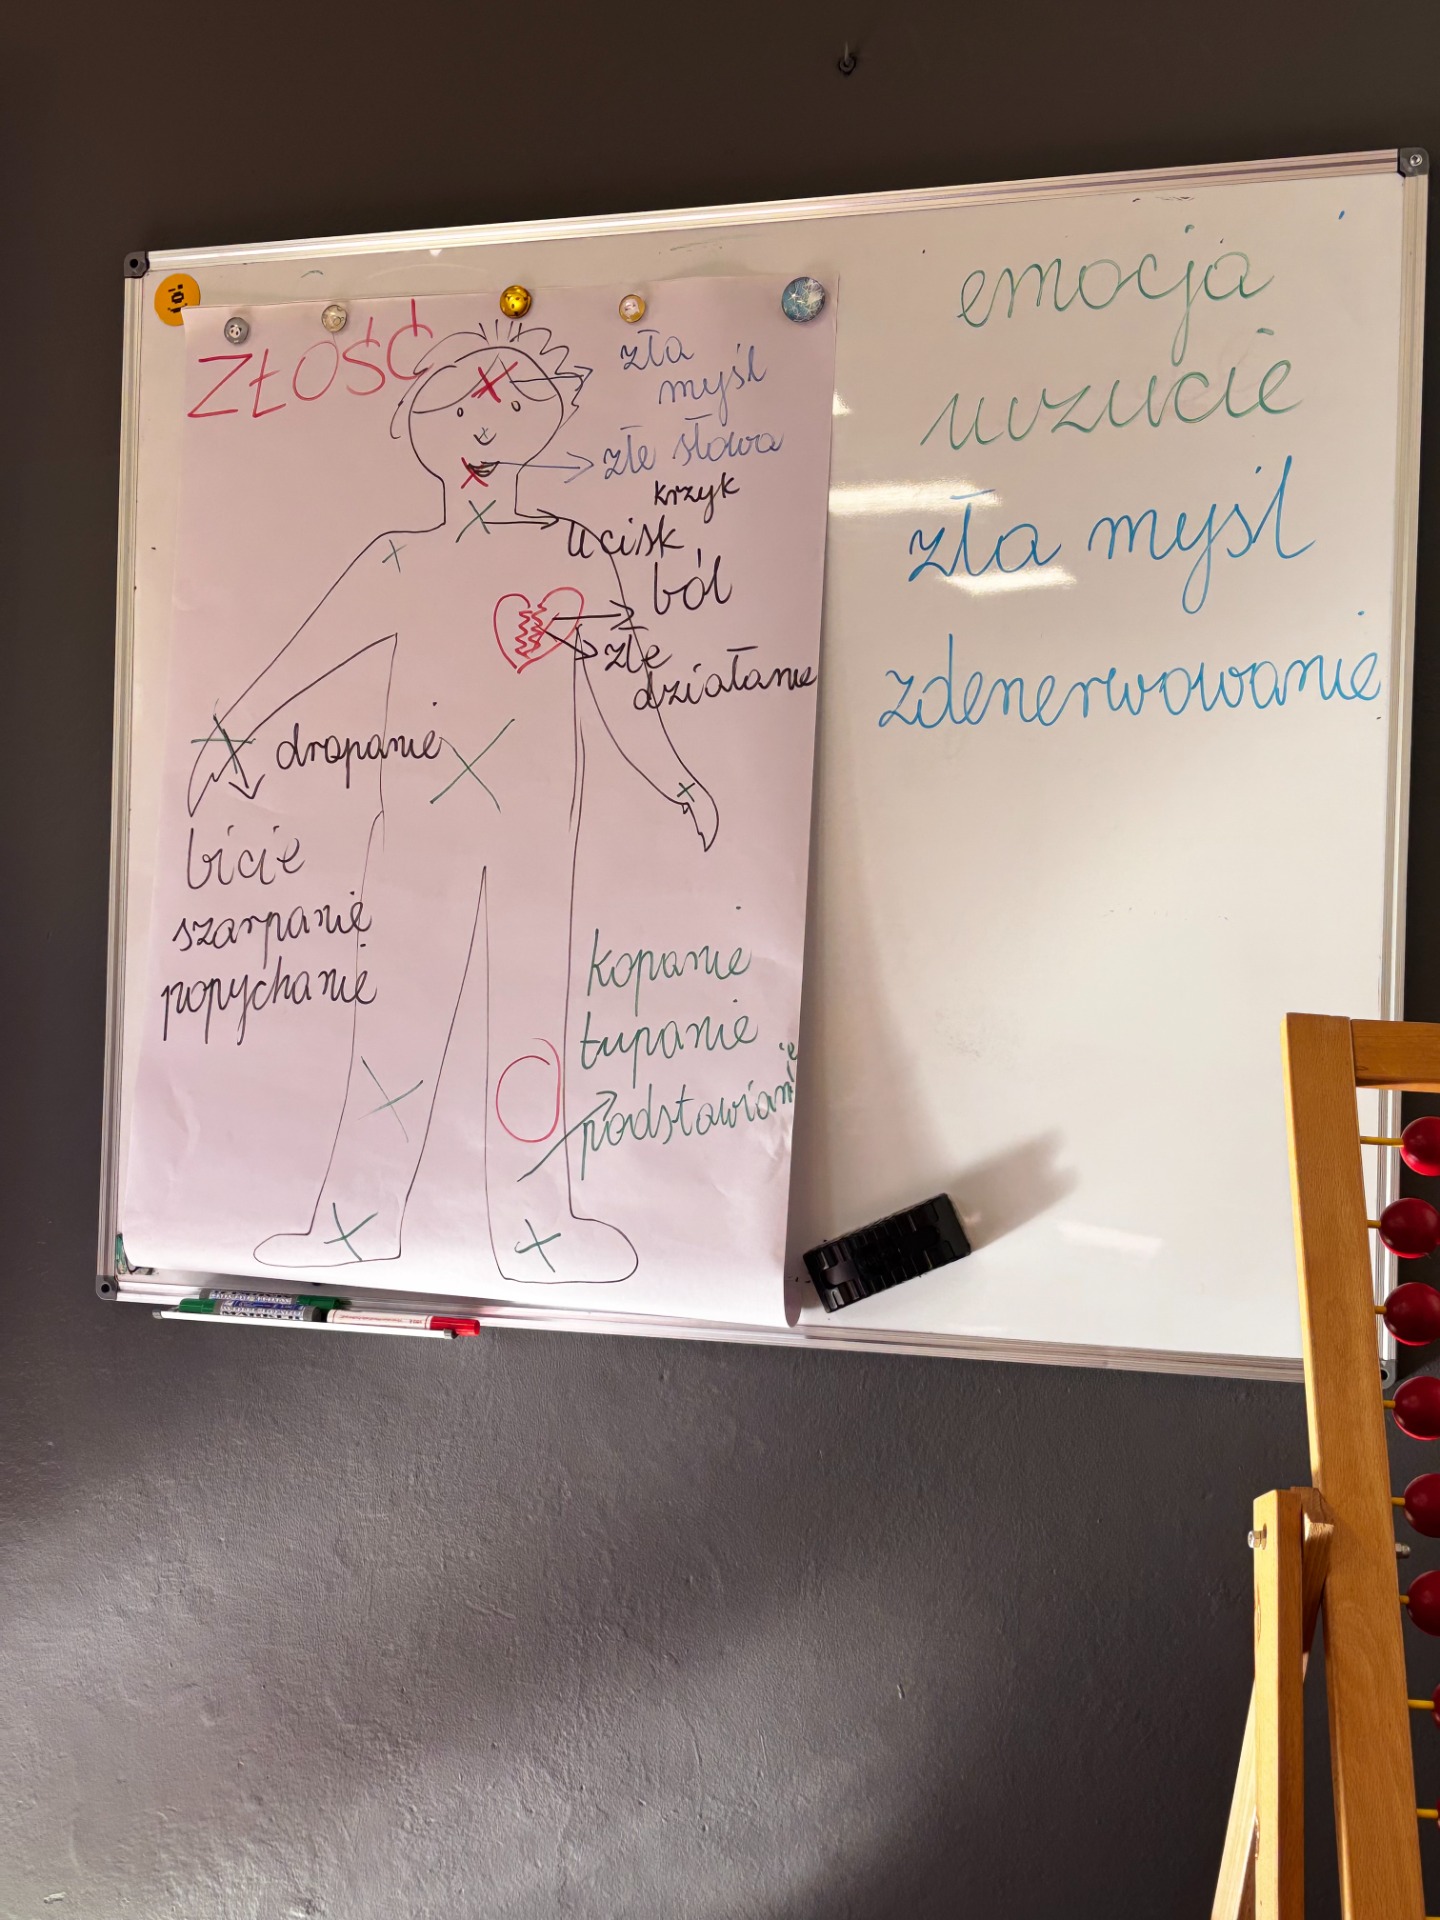 ZŁOŚĆ
zła
myśl
złe słowa
krzyk
ucisk
ból
złe
działanie
drapanie
bicie
szarpanie
popychanie
kopanie
tupanie
podstawianie
emocja
uczucie
zła myśl
zdenerwowanie